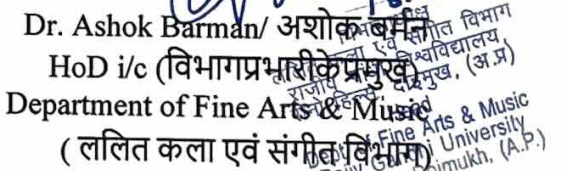 Dr. Ashok Barman/ अशोक बर्मन
HoD i/c (विभागप्रभारीकेप्रमुख)
Department of Fine Arts & Music
( ललित कला एवं संगीत विभाग)
एवं संगीत विभाग
विश्वविद्यालय
दोईमुख, (अ.प्र)
Fine Arts & Music
University
(A.P.)